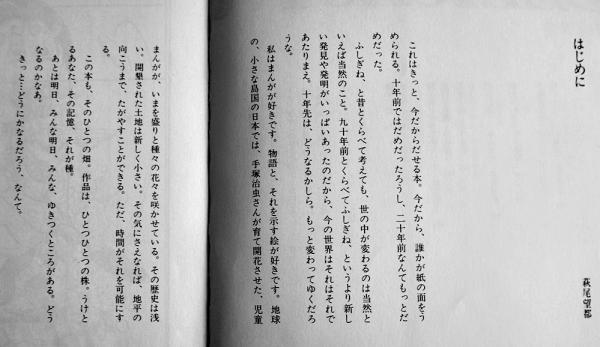 はじめに
萩尾望都
これはきっと、今だからだせる本。今だから、誰かが紙の面をう
められる。十年前ではだめだったろうし、二十年前なんてもっとだ
めだった。
ふしぎね、と昔とくらべて考えても、世の中が変わるのは当然と
いえば当然のこと。九十年前とくらべてふしぎね、というより新し
い発見や発明がいっぱいあったのだから、今の世界はそれはそれで
あたりまえ。十年先は、どうなるかしら。もっと変わってゆくだろ
うな。
私はまんがが好きです。物語と、それを示す絵が好きです。地球
の、小さな島国の日本では、手塚治虫さんが育て開花させた、児童
まんがが、いまを盛りと種々の花々を咲かせている。その歴史は浅
い。開墾された土地は新しく小さい。その気にさえなれば、地平の
向こうまで、たがやすことができる。ただ、時間がそれを可能にす
る。
この本も、そのひとつの畑。作品は、ひとつひとつの株。うけと
るあなた、その記憶、それが種。
あとは明日、みんな明日、みんな、ゆきつくところがある。どう
なるのかなあ。
きっと…どうにかなるだろう、なんて。